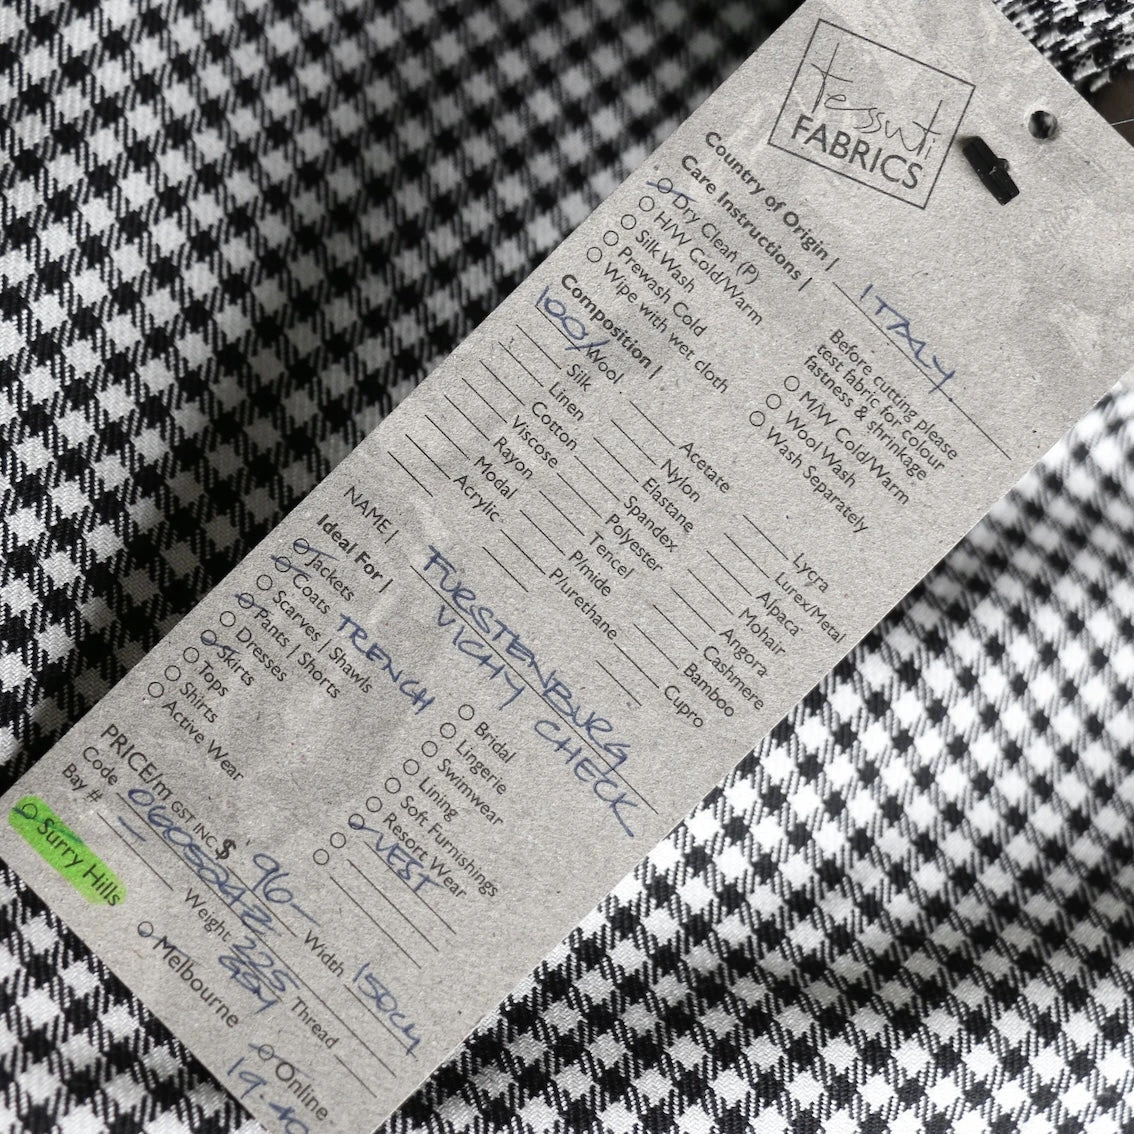 tessuti
FABRICS
Country of Origin | ITALY
Care Instructions |
Dry Clean (P)
H/W Cold/Warm
Silk Wash
Prewash Cold
Wipe with wet cloth
Before cutting please
test fabric for colour
fastness & shrinkage
M/W Cold/Warm
Wool Wash
Wash Separately
Composition |
100% Wool
Silk
Linen
Cotton
Viscose
Rayon
Modal
Acrylic
Acetate
Nylon
Elastane
Spandex
Polyester
Tencel
P/mide
P/urethane
Lycra
Lurex/Metal
Alpaca
Mohair
Angora
Cashmere
Bamboo
Cupro
NAME | FURSTENBURG
VICHY CHECK
Ideal For |
Jackets
Coats TRENCH
Scarves | Shawls
Pants | Shorts
Dresses
Skirts
Tops
Shirts
Active Wear
Bridal
Lingerie
Swimwear
Lining
Soft Furnishings
Resort Wear
VEST
PRICE/mt GST INC $ 96- Width 150CM
Code 06050242 Weight 225 GSM Thread
Bay # -
Surry Hills
Melbourne
Online
19.40